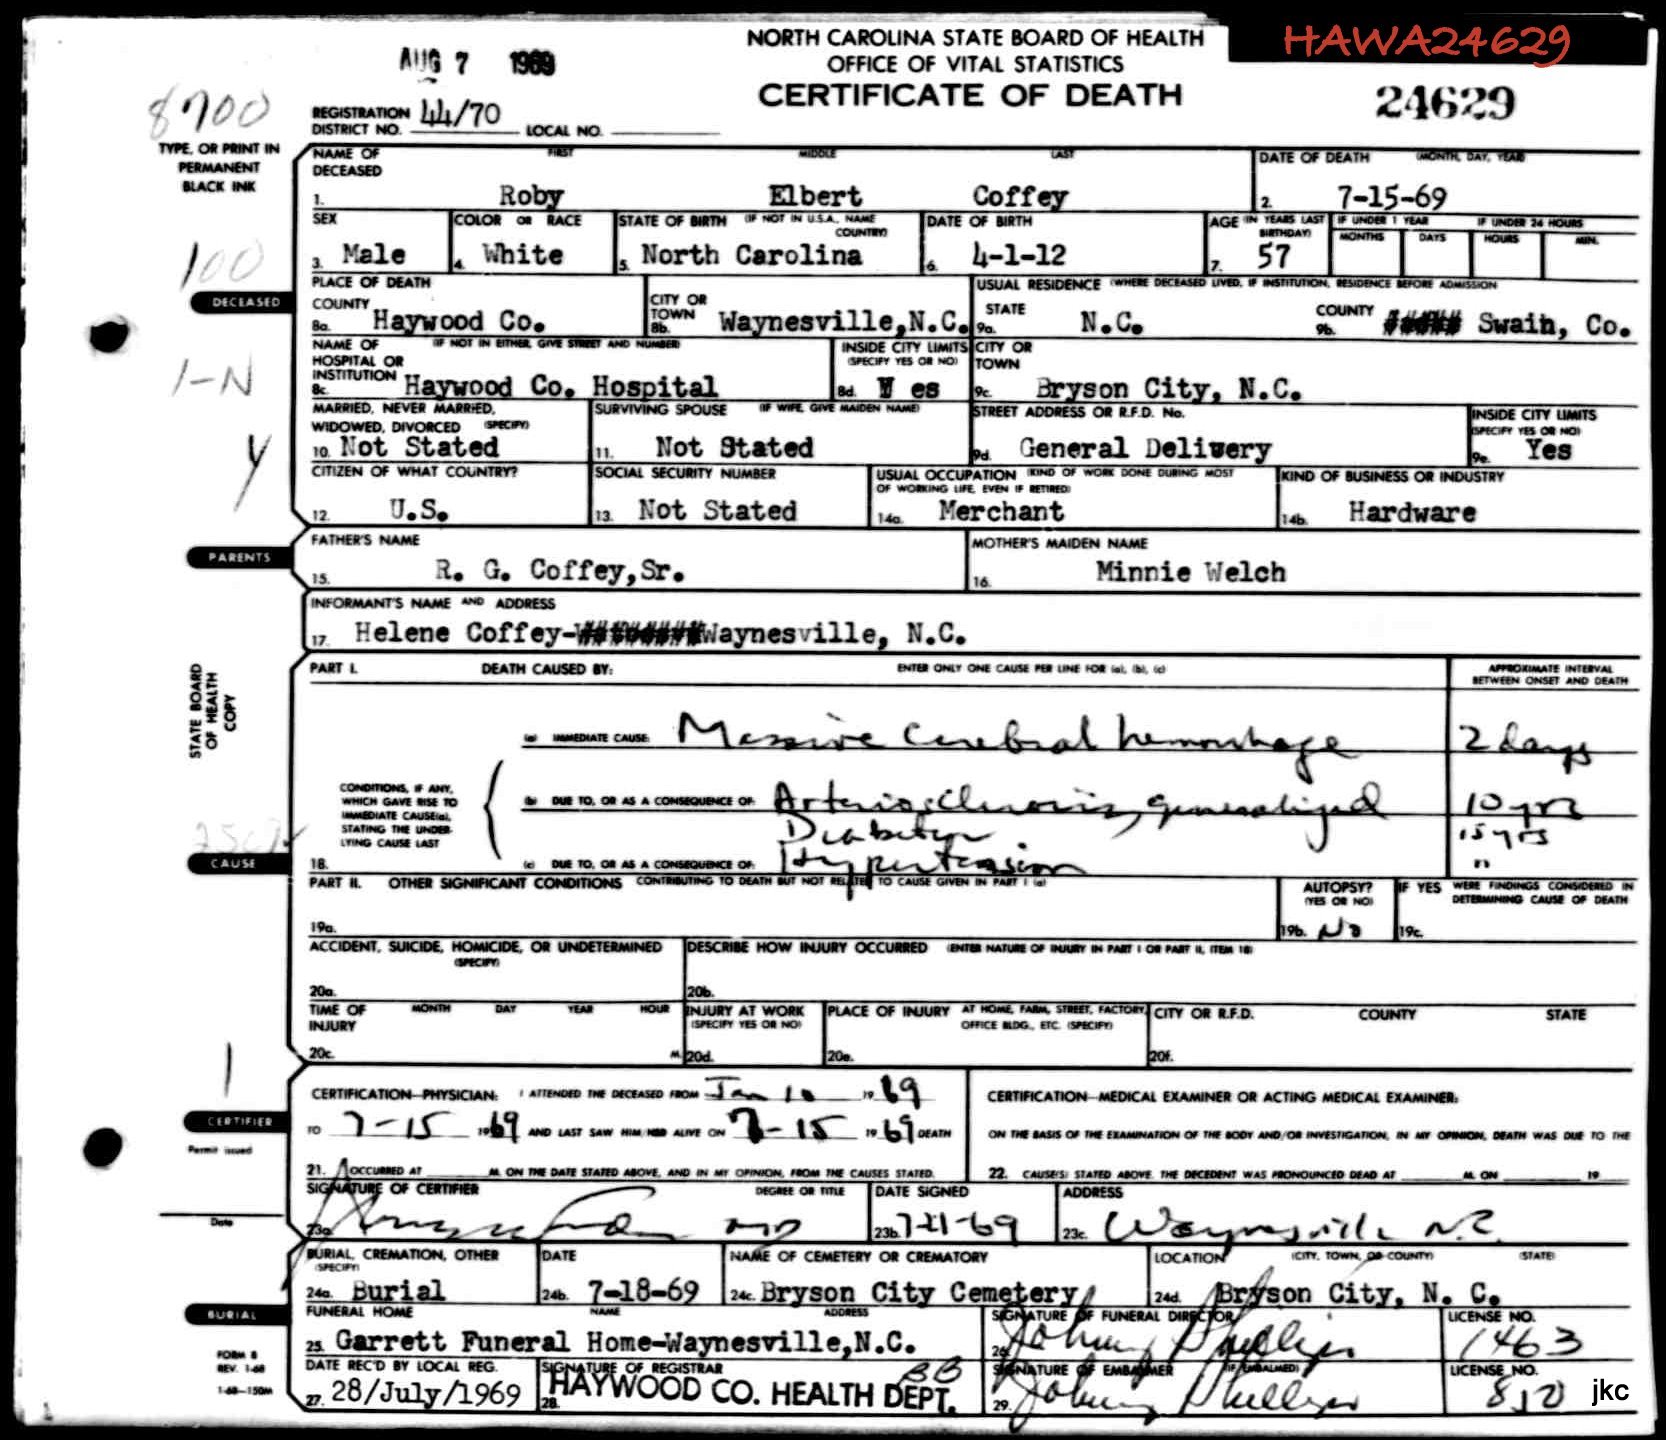 HAWA24629
AUG 7 1969
NORTH CAROLINA STATE BOARD OF HEALTH
OFFICE OF VITAL STATISTICS
CERTIFICATE OF DEATH
24629
8700
REGISTRATION DISTRICT NO. 44/70 LOCAL NO.
TYPE, OR PRINT IN
PERMANENT
BLACK INK
NAME OF DECEASED FIRST MIDDLE LAST DATE OF DEATH (MONTH, DAY, YEAR)
1. Roby Elbert Coffey 2. 7-15-69
SEX COLOR OR RACE STATE OF BIRTH (IF NOT IN U.S.A., NAME COUNTRY) DATE OF BIRTH AGE (IN YEARS LAST BIRTHDAY) IF UNDER 1 YEAR IF UNDER 24 HOURS
MONTHS DAYS HOURS MIN.
3. Male 4. White 5. North Carolina 6. 4-1-12 7. 57
100
DECEASED
PLACE OF DEATH USUAL RESIDENCE (WHERE DECEASED LIVED, IF INSTITUTION, RESIDENCE BEFORE ADMISSION
COUNTY CITY OR TOWN STATE COUNTY
8a. Haywood Co. 8b. Waynesville,N.C. 9a. N.C. 9b. ##### Swain, Co.
NAME OF HOSPITAL OR INSTITUTION (IF NOT IN EITHER, GIVE STREET AND NUMBER) INSIDE CITY LIMITS (SPECIFY YES OR NO) CITY OR TOWN
8c. Haywood Co. Hospital 8d. Yes 9c. Bryson City, N.C.
1-N
MARRIED, NEVER MARRIED, WIDOWED, DIVORCED (SPECIFY) SURVIVING SPOUSE (IF WIFE, GIVE MAIDEN NAME) STREET ADDRESS OR R.F.D. No. INSIDE CITY LIMITS (SPECIFY YES OR NO)
10. Not Stated 11. Not Stated 9d. General Delivery 9e. Yes
Y
CITIZEN OF WHAT COUNTRY? SOCIAL SECURITY NUMBER USUAL OCCUPATION (KIND OF WORK DONE DURING MOST OF WORKING LIFE, EVEN IF RETIRED) KIND OF BUSINESS OR INDUSTRY
12. U.S. 13. Not Stated 14a. Merchant 14b. Hardware
PARENTS
FATHER'S NAME MOTHER'S MAIDEN NAME
15. R. G. Coffey,Sr. 16. Minnie Welch
INFORMANT'S NAME AND ADDRESS
17. Helene Coffey-W########Waynesville, N.C.
STATE BOARD
OF HEALTH
COPY
PART I. DEATH CAUSED BY: ENTER ONLY ONE CAUSE PER LINE FOR (a), (b), (c) APPROXIMATE INTERVAL BETWEEN ONSET AND DEATH
(a) IMMEDIATE CAUSE: Massive Cerebral hemorrhage 2 days
CONDITIONS, IF ANY,
WHICH GAVE RISE TO
IMMEDIATE CAUSE(a),
STATING THE UNDER-
LYING CAUSE LAST
(b) DUE TO, OR AS A CONSEQUENCE OF: Arteriosclerosis, generalized 10 yrs
Diabetes 15 yrs
18. (c) DUE TO, OR AS A CONSEQUENCE OF: Hypertension "
CAUSE
PART II. OTHER SIGNIFICANT CONDITIONS CONTRIBUTING TO DEATH BUT NOT RELATED TO CAUSE GIVEN IN PART I (a) AUTOPSY? (YES OR NO) IF YES WERE FINDINGS CONSIDERED IN DETERMINING CAUSE OF DEATH
19a. 19b. No 19c.
ACCIDENT, SUICIDE, HOMICIDE, OR UNDETERMINED (SPECIFY) DESCRIBE HOW INJURY OCCURRED (ENTER NATURE OF INJURY IN PART I OR PART II, ITEM 18)
20a. 20b.
TIME OF INJURY MONTH DAY YEAR HOUR INJURY AT WORK (SPECIFY YES OR NO) PLACE OF INJURY AT HOME, FARM, STREET, FACTORY, OFFICE BLDG., ETC. (SPECIFY) CITY OR R.F.D. COUNTY STATE
20c. M. 20d. 20e. 20f.
1
CERTIFIER
Permit issued
Date
CERTIFICATION—PHYSICIAN: I ATTENDED THE DECEASED FROM Jan 10 19 69
TO 7-15 1969 AND LAST SAW HIM/HER ALIVE ON 7-15 19 69 DEATH
21. OCCURRED AT M. ON THE DATE STATED ABOVE, AND IN MY OPINION, FROM THE CAUSES STATED.
CERTIFICATION—MEDICAL EXAMINER OR ACTING MEDICAL EXAMINER:
ON THE BASIS OF THE EXAMINATION OF THE BODY AND/OR INVESTIGATION, IN MY OPINION, DEATH WAS DUE TO THE
22. CAUSE(S) STATED ABOVE. THE DECEDENT WAS PRONOUNCED DEAD AT M. ON 19
SIGNATURE OF CERTIFIER DEGREE OR TITLE DATE SIGNED ADDRESS
23a. MD 23b. 7-21-69 23c. Waynesville N.C.
BURIAL, CREMATION, OTHER (SPECIFY) DATE NAME OF CEMETERY OR CREMATORY LOCATION (CITY, TOWN, OR COUNTY) (STATE)
24a. Burial 24b. 7-18-69 24c. Bryson City Cemetery 24d. Bryson City, N. C.
BURIAL
FUNERAL HOME NAME ADDRESS SIGNATURE OF FUNERAL DIRECTOR LICENSE NO.
25. Garrett Funeral Home-Waynesville,N.C. 26. Johnny Phillips 1463
FORM 8
REV. 1-68
1-68—150M
DATE REC'D BY LOCAL REG. SIGNATURE OF REGISTRAR SIGNATURE OF EMBALMER (IF EMBALMED) LICENSE NO.
27. 28/July/1969 28. HAYWOOD CO. HEALTH DEPT. BB 29. Johnny Phillips 810
jkc